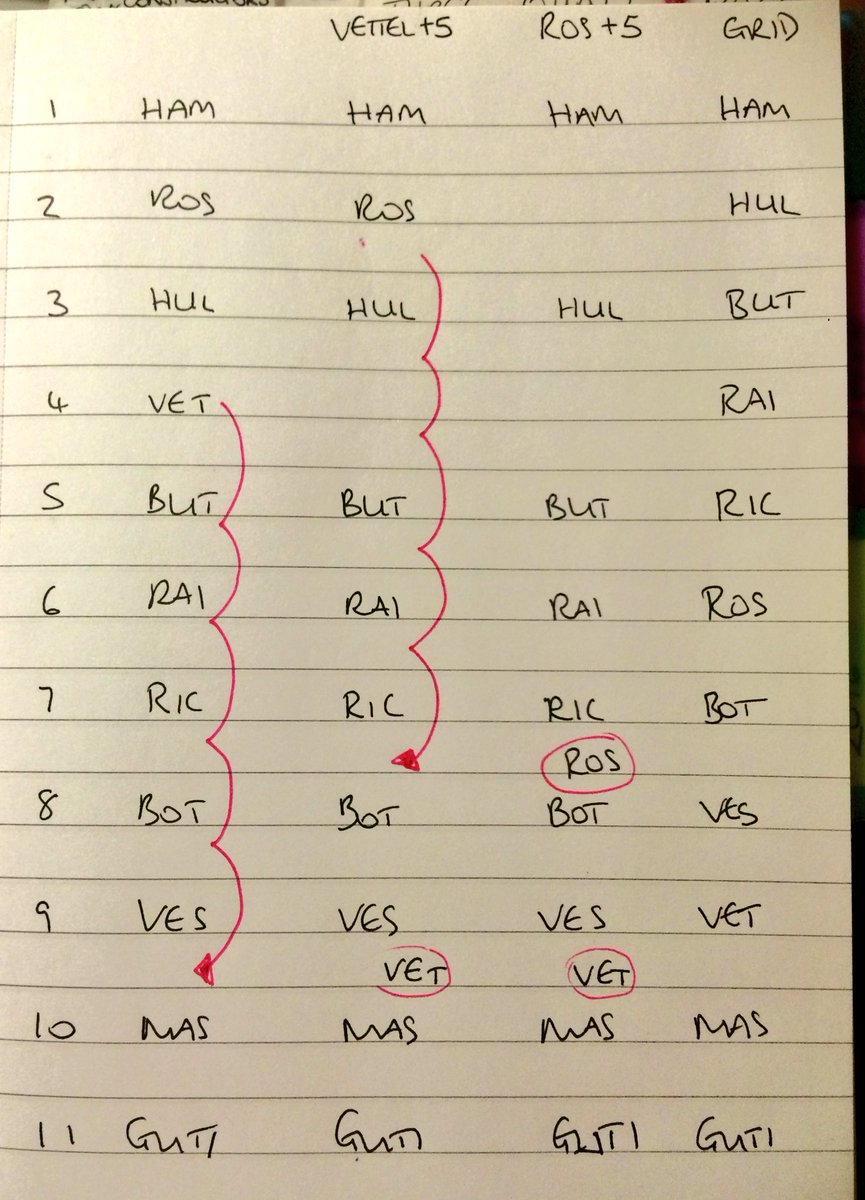 VETTEL+5 ROS+5 GRID
1 HAM HAM HAM HAM
2 ROS ROS HUL
3 HUL HUL HUL BUT
4 VET RAI
5 BUT BUT BUT RIC
6 RAI RAI RAI ROS
7 RIC RIC RIC BOT
ROS
8 BOT BOT BOT VES
9 VES VES VES VET
VET VET
10 MAS MAS MAS MAS
11 GUTI GUTI GUTI GUTI